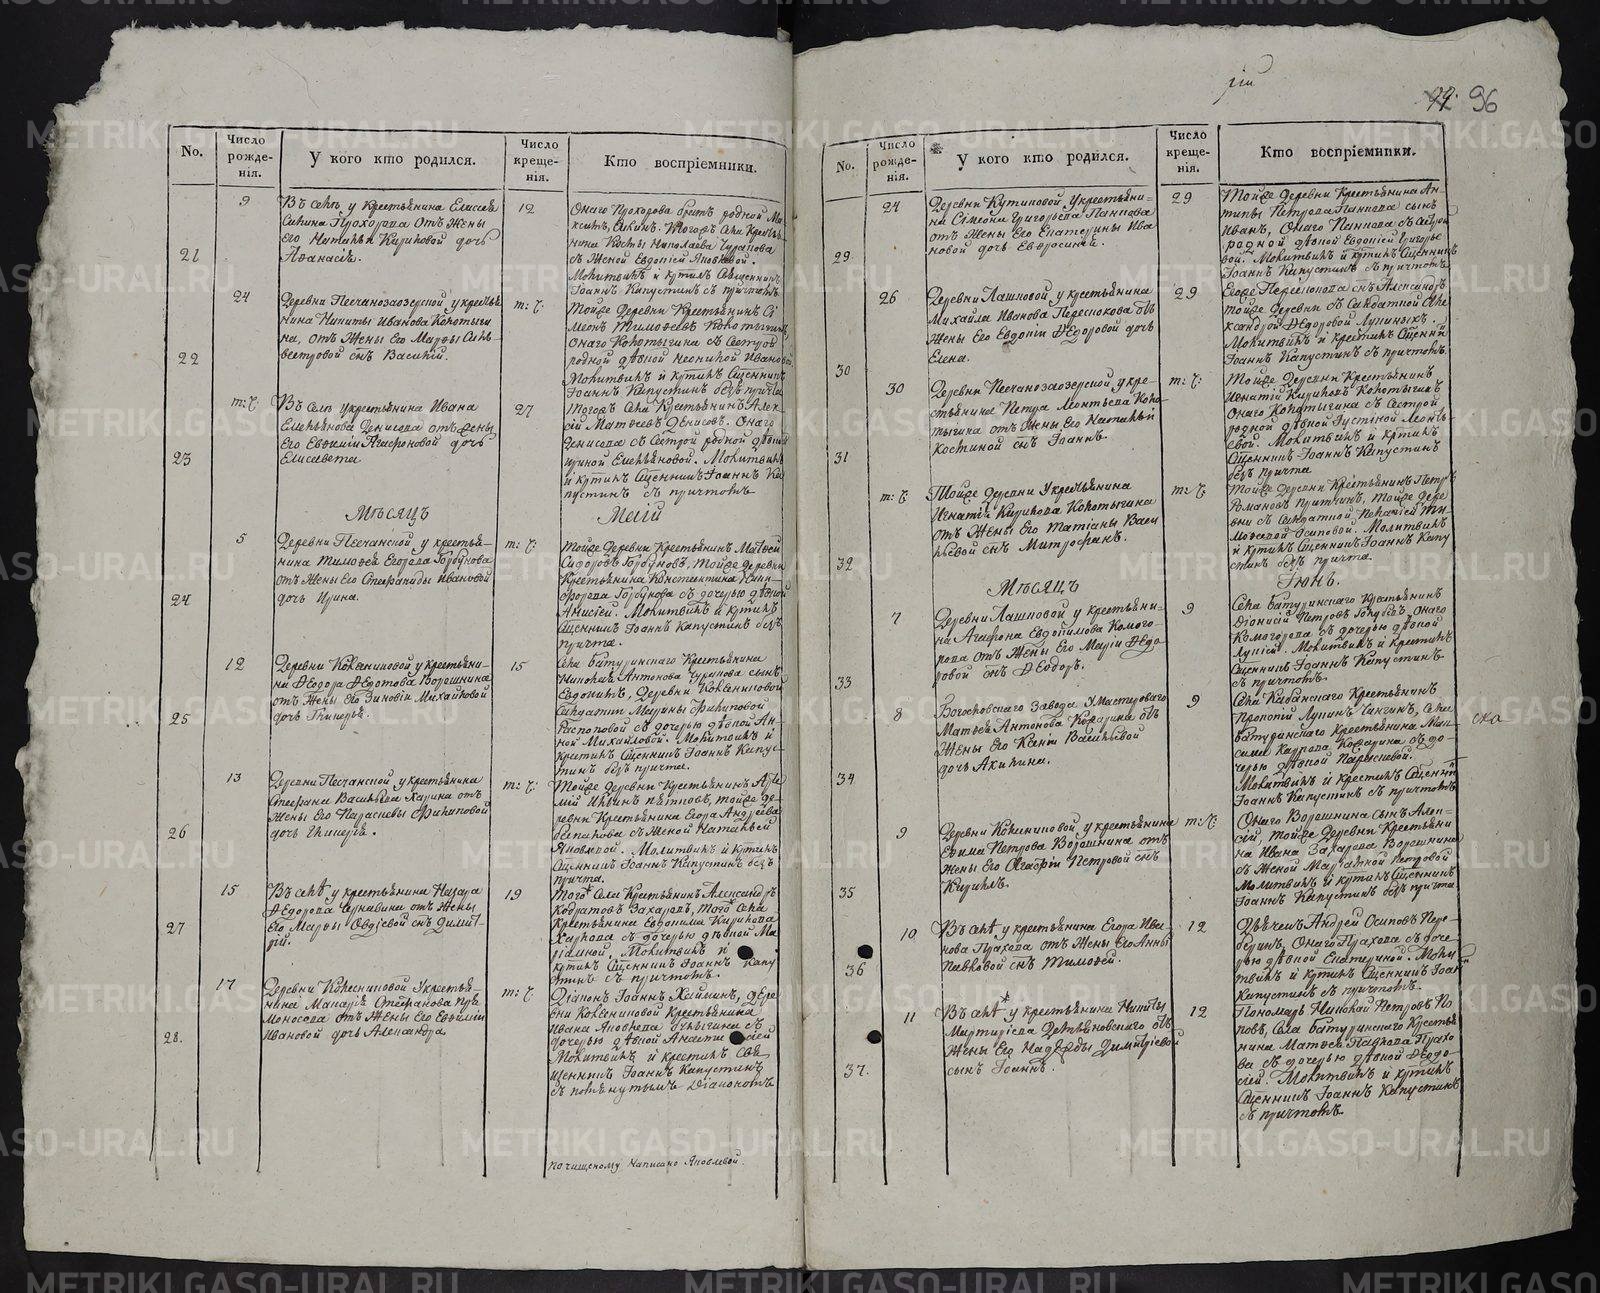 рпи
96
No.
Число рожденія.
У кого кто родился.
Число крещенія.
Кто воспріемники.
21
9
Въ селѣ у крестьянина Елисея
Прохорова отъ жены
его Натальи Кириловой дочь
Афанасія.
12
Онаго Прохорова братъ родной
съ женой Евдокіей Яковлевой.
Молитвилъ и крестилъ Священникъ
Іоаннъ Капустинъ съ причтомъ.
22
24
Деревни Песчаноозерской у крестья-
нина Никиты Иванова Колотыги-
на, отъ жены его Марфы Силь-
вестровой сынъ Василій.
т: г:
Тойже деревни крестьянинъ Си-
меонъ Тимофеевъ Колотыгинъ,
онаго Колотыгина съ сестрой
родной дѣвкой Ивановой
Молитвилъ и крстилъ Сщенникъ
Іоаннъ Капустинъ безъ причта
23
т: г:
Въ селѣ у крестьянина Ивана
Емельянова Денисова отъ жены
его Евфиміи Агафоновой дочь
Елисавета
27
Тогожъ села крестьянинъ Алек-
сѣй Матвеевъ Денисовъ. Онаго
Денисова съ сестрой родной дѣвкой
Ириной Емельяновой. Молитвилъ
и крстилъ Сщенникъ Іоаннъ Ка-
пустинъ съ причтомъ
Мѣсяцъ
Маій
24
5
Деревни Песчанской у крестья-
нина Тимофея Егорова Горбунова
отъ жены его Степаниды Ивановой
дочь Ирина.
т: г:
Тойже деревни крестьянинъ Матвей
Сидоровъ Горбуновъ, тойже деревни
крестьянина Константина Ники-
форова Горбунова съ дочерью дѣвкой
Анисіей. Молитвилъ и крстилъ
Сщенникъ Іоаннъ Капустинъ безъ
причта.
25
12
Деревни у крестьяни-
на Феодора Федотова Ворошнина
отъ жены его Зиновіи Михайловой
дочь Гликерія.
15
Села Батуринскаго крестьянина
Николая Антонова Чурапова сынъ
Евдокимъ, деревни
солдатки Марины Филиповой
съ дочерью дѣвкой Ан-
ной Михайловой. Молитвилъ и
крстилъ Сщенникъ Іоаннъ Капус-
тинъ безъ причта.
26
13
Деревни Песчанской у крестьянина
Стефана Васильева Харина отъ
жены его Параскевы Филиповой
дочь Гликерія.
т: г:
Тойже деревни крестьянинъ
тойже де-
ревни крестьянина Егора Андреева
съ женой Натальей
Яковлевой. Молитвилъ и крстилъ
Сщенникъ Іоаннъ Капустинъ безъ
причта.
27
15
Въ селѣ у крестьянина Назара
Федорова Чернавина отъ жены
его Марфы Овдѣевой сынъ Димит-
рій.
19
Того села крестьянинъ Александръ
Кодратовъ Захаровъ, того села
крестьянина Евдокима Кирилова
съ дочерью дѣвкой Ма-
ріамной. Молитвилъ и
крстилъ Сщенникъ Іоаннъ Капу-
стинъ съ причтомъ.
28.
17
Деревни у крестья-
нина Макарія Стефанова
отъ жены его Евфиміи
Ивановой дочь Александра
т: г:
Діаконъ Іоаннъ дере-
вни крестьянина
Ивана Яковлева съ
дочерью дѣвкой
Молитвилъ и крестилъ Свя-
щенникъ Іоаннъ Капустинъ
съ помянутымъ Діакономъ
по чищеному написано Яковлевой.
No.
Число рожденія.
У кого кто родился.
Число крещенія.
Кто воспріемники.
29
24
Деревни Кутиковой у крестьяни-
на Симеона Григорьева Панкова
отъ жены его Екатерины Ива-
новой дочь Евфросинія.
29
Тойже деревни крестьянина Ан-
типы Петрова Панкова сынъ
Иванъ, онаго Панкова съ сестрой
родной дѣвкой Евдокіей Григорье-
вой. Молитвилъ и крстилъ Сщенникъ
Іоаннъ Капустинъ съ причтомъ
30
26
Деревни Лашковой у крестьянина
Михайла Иванова отъ
жены его Евдокіи Федоровой дочь
Елена.
29
сынъ Александръ
тойже деревни съ солдаткой Але-
ксандрой Федоровой
Молитвилъ и крестилъ Сщенникъ
Іоаннъ Капустинъ съ причтомъ.
31
30
Деревни Песчаноозерской у кре-
стьянина Петра Леонтьева Коло-
тыгина отъ жены его Натальи
Костиной сынъ Іоаннъ.
т: г:
Тойже деревни крестьянинъ
Игнатій Кириловъ Колотыгинъ
онаго Колотыгина съ сестрой
родной дѣвкой Іустиной Леонть-
евой. Молитвилъ и крстилъ
Сщенникъ Іоаннъ Капустинъ
безъ причта
32
т: г:
Тойже деревни у крестьянина
Игнатія Кирилова Колотыгина
отъ жены его Татіаны Васи-
льевой сынъ Митрофанъ.
т: г:
Тойже деревни крестьянинъ Петръ
Романовъ тойже дере-
вни съ солдаткой Пелагіей Ти-
мофеевой Осиповой. Молитвилъ
и крстилъ Сщенникъ Іоаннъ Капу-
стинъ безъ причта.
Мѣсяцъ
Іюнь.
33
7
Деревни Лашковой у крестьяни-
на Агафона Евдокимова Комого-
рова отъ жены его Маріи Федо-
ровой сынъ Феодоръ.
9
Села Батуринскаго крестьянинъ
Діонисій Петровъ онаго
Комогорова съ дочерью дѣвкой
Лукіей. Молитвилъ и крестилъ
Сщенникъ Іоаннъ Капустинъ
съ причтомъ.
34
8
Богословскаго завода у мастероваго
Матвея Антонова Кокарина отъ
жены его Ксеніи Васильевой
дочь Акилина.
9
Села Кабанскаго крестьянинъ
Прокопій Лукинъ села
Батуринскаго крестьянина Мак-
сима Карпова Кокарина съ до-
черью дѣвкой Параскевой.
Молитвилъ и крестилъ Сщенникъ
Іоаннъ Капустинъ съ причтомъ
ско
35
9
Деревни у крестьянина
Екима Петрова Ворошнина отъ
жены его Агафіи Петровой сынъ
Кирилъ.
т: г:
Онаго Ворошнина сынъ Алек-
сѣй, тойже деревни крестьяни-
на Ивана Захарова Ворошнина
съ женой Петровой
Молитвилъ и крстилъ Сщенникъ
Іоаннъ Капустинъ безъ причта
36
10
Въ селѣ у крестьянина Егора Ива-
нова Прахова отъ жены его Анны
Павловой сынъ Тимофей.
12
Дьячекъ Андрей Осиповъ Пере-
беринъ, онаго Прахова съ доче-
рью дѣвкой Екатериной. Моли-
твилъ и крстилъ Сщенникъ Іоаннъ
Капустинъ съ причтомъ.
37.
11
Въ селѣ у крестьянина Никиты
Мартиріева отъ
жены его Надежды Димитріевой
сынъ Іоаннъ.
12
Пономарь Николай Петровъ По-
повъ, села Батуринскаго крестья-
нина Матвея Павлова Прахо-
ва съ дочерью дѣвкой Феодо-
сіей. Молитвилъ и крстилъ
Сщенникъ Іоаннъ Капустинъ
съ причтомъ.